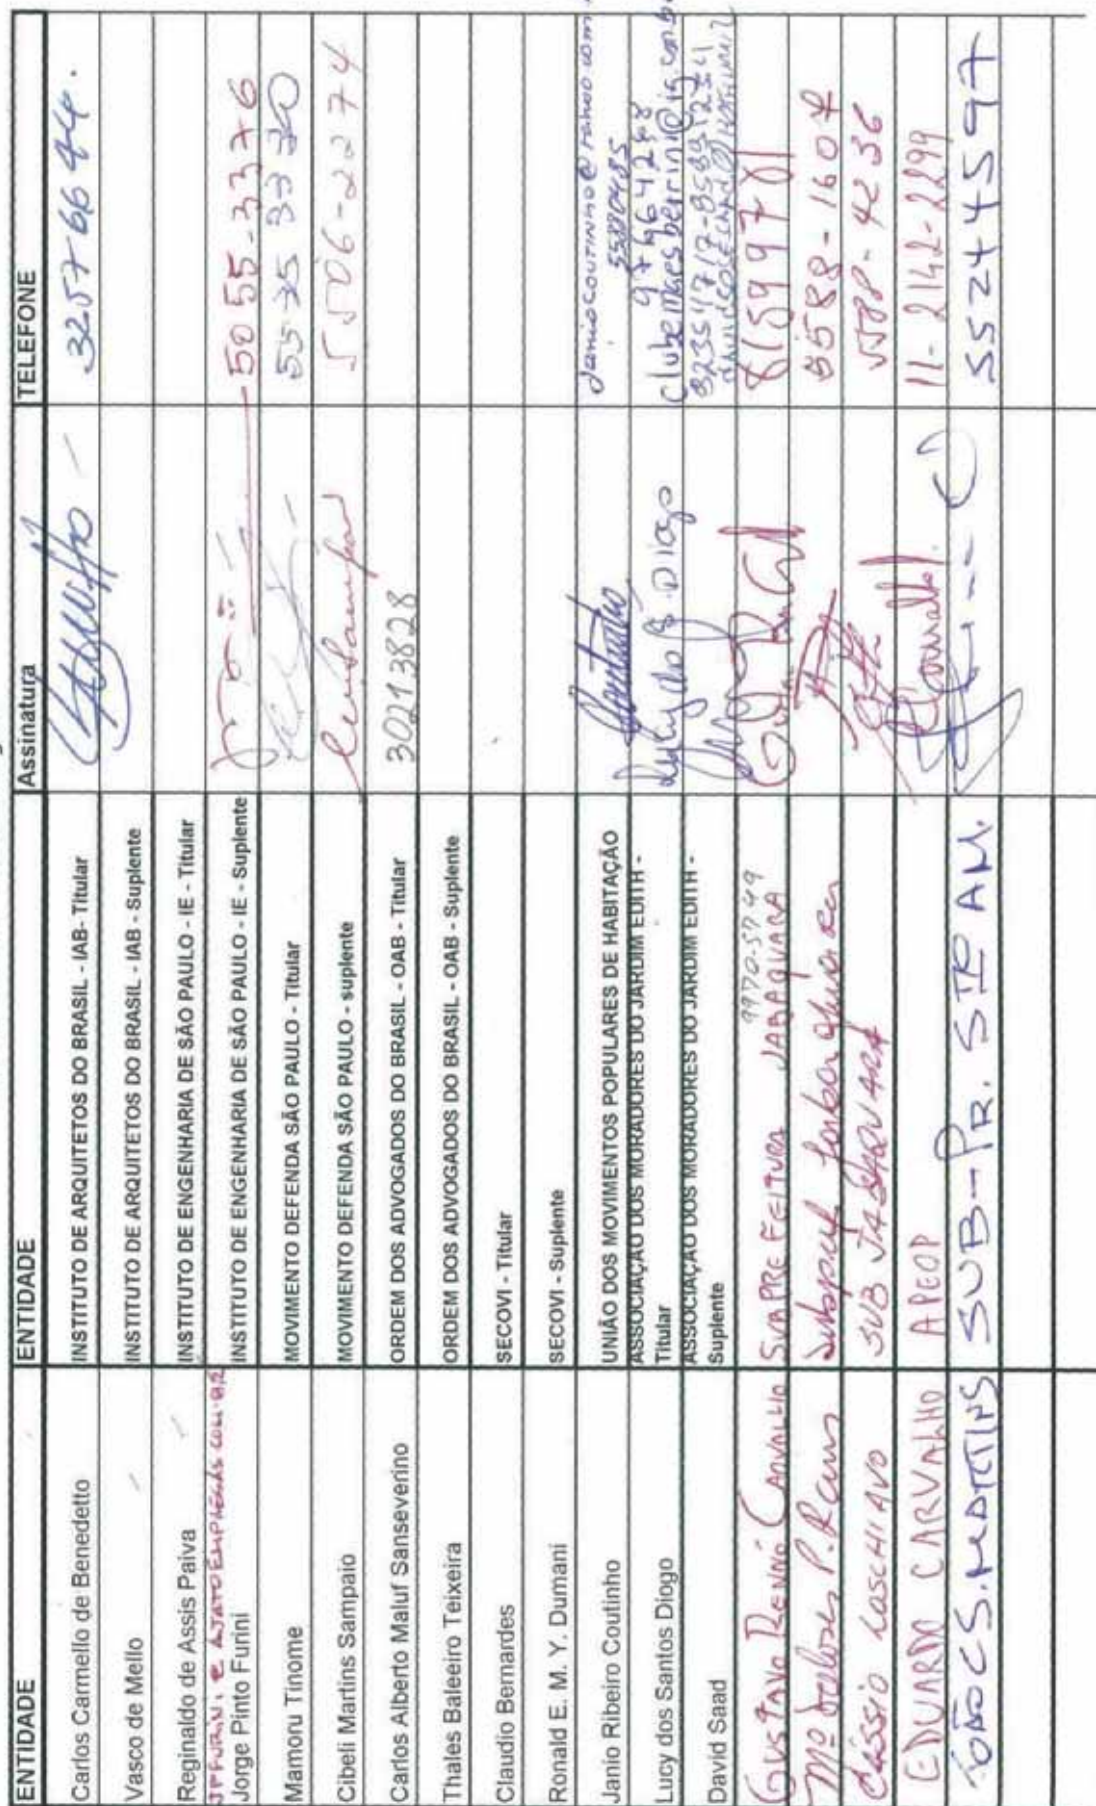 ENTIDADE ENTIDADE Assinatura TELEFONE
Carlos Carmello de Benedetto INSTITUTO DE ARQUITETOS DO BRASIL - IAB- Titular 32576644.
Vasco de Mello INSTITUTO DE ARQUITETOS DO BRASIL - IAB - Suplente
Reginaldo de Assis Paiva INSTITUTO DE ENGENHARIA DE SÃO PAULO - IE - Titular
JPFURINI e
Jorge Pinto Furini INSTITUTO DE ENGENHARIA DE SÃO PAULO - IE - Suplente 5055-3376
Mamoru Tinome MOVIMENTO DEFENDA SÃO PAULO - Titular
Cibeli Martins Sampaio MOVIMENTO DEFENDA SÃO PAULO - suplente 5506-2274
Carlos Alberto Maluf Sanseverino ORDEM DOS ADVOGADOS DO BRASIL - OAB - Titular 30213828
Thales Baleeiro Teixeira ORDEM DOS ADVOGADOS DO BRASIL - OAB - Suplente
Claudio Bernardes SECOVI - Titular
Ronald E. M. Y. Dumani SECOVI - Suplente
Janio Ribeiro Coutinho UNIÃO DOS MOVIMENTOS POPULARES DE HABITAÇÃO Coutinho janiocoutinho@yahoo.com
55890485
Lucy dos Santos Diogo ASSOCIAÇÃO DOS MORADORES DO JARDIM EDITH -
Titular Lucy dos S. Diogo
David Saad ASSOCIAÇÃO DOS MORADORES DO JARDIM EDITH -
Suplente
9970-5749
GUSTAVO RENNÓ CARVALHO SUBPREFEITURA JABAQUARA 81599781
Mª Dolores P. Ramos 5588-1607
CÁSSIO LOSCHIAVO SUB JABAQUARA 5588-4236
EDUARDO CARVALHO APEOP 11-2142-2299
JOÃO C S. MARTINS SUB-PR. STO AM. 55244597